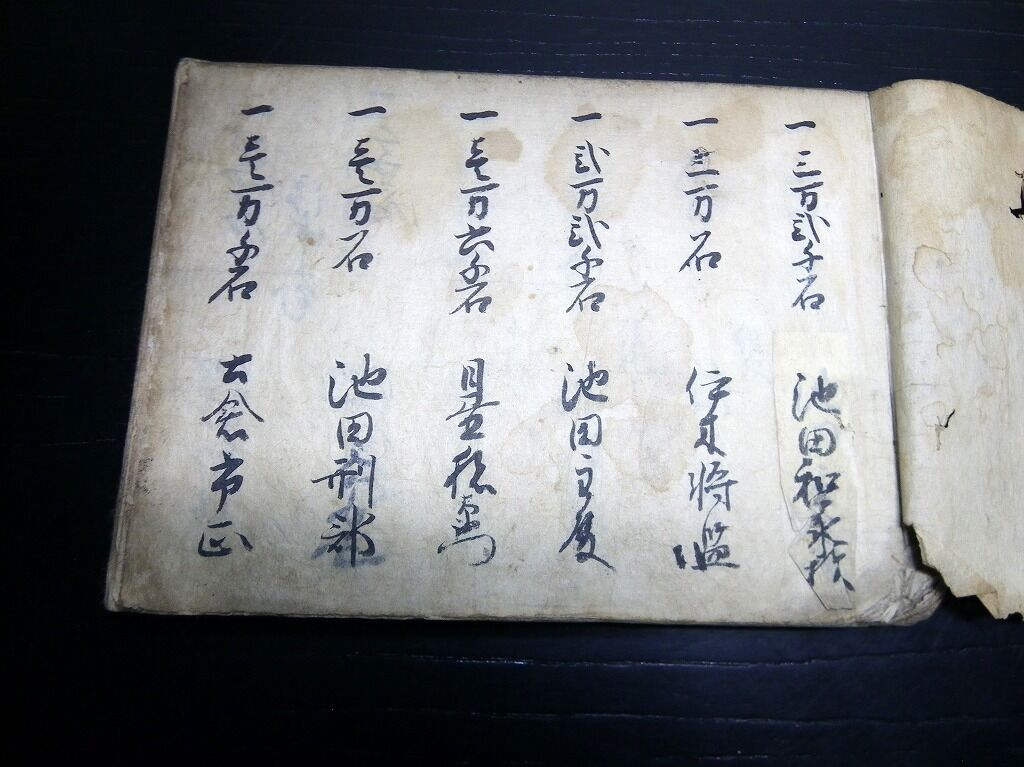 一 三万弐千石 池田和泉
一 三万石 伊木将監
一 弐万弐千石 池田主殿
一 壱万六千石 日置
一 壱万石 池田刑部
一 壱万千石 土倉市正